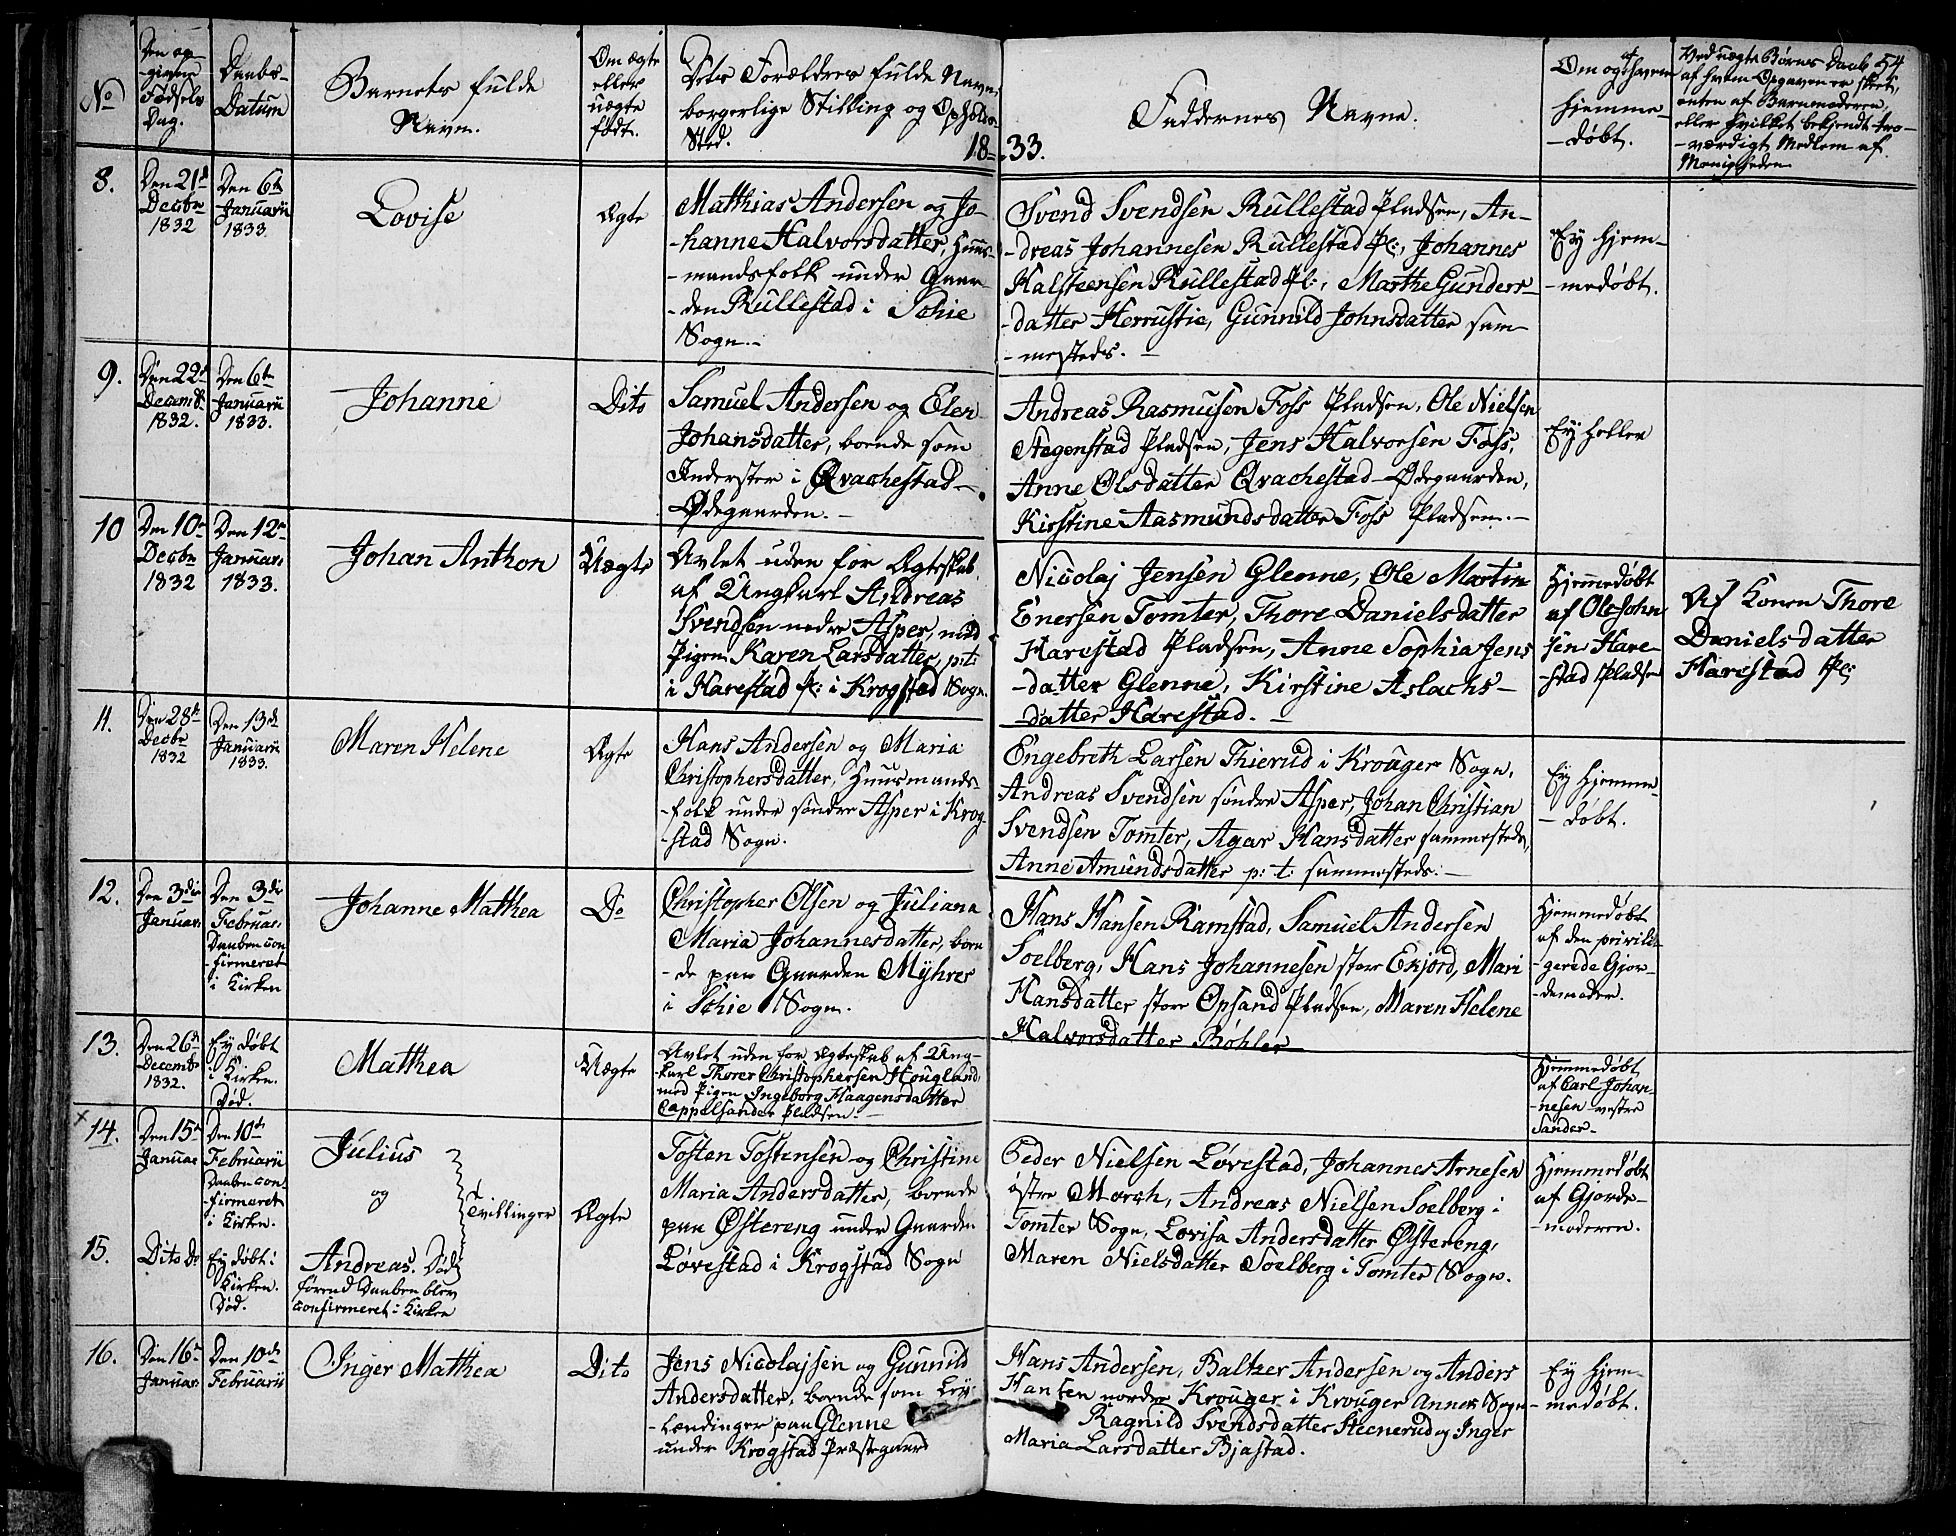 No
Den op-
-givne
Fødsels
Dag.
Daabs-
Datum
Barnets fulde
Navn.
Om ægte
eller
uægte
født.
Dets Forældres fulde Navn,
borgerlige Stilling og Opholds-
Sted.
18-33.
Faddernes Navne.
Om og af hvem
hjemme-
-døbt.
54
Ved uægte Børns Daab
af hvem Opgaven er skeet,
enten af Barnemoderen,
eller hvilket bekjendt tro-
-værdigt Medlem af
Menigheden
8.
Den 21de
Decbr
1832
Den 6te
Januarii
1833.
Lovise
Ægte
Matthias Andersen og Jo-
-hanne Halvorsdatter, Huus-
-mandsfolk under Gaar-
-den Rullestad i Schie
Sogn.-
Svend Svendsen Rullestad Pladsen, An-
-dreas Johannesen Rullestad Pl:, Johannes
Kalsteensen Rullestad Pl:, Marthe Gunders-
-datter Herrustie, Gunnild Johnsdatter sam-
-mesteds. -
Ey hjem-
-medøbt.
9.
Den 22de
Decemb.
1832.
Den 6te
Januarii
1833.
Johanne
Dito
Samuel Andersen og Elen
Johansdatter, boende som
Inderster i Qvachestad-
Ødegaarden. -
Andreas Rasmusen Foss Pladsen, Ole Nielsen
Stegenstad Pladsen, Jens Halvorsen Foss,
Anne Olsdatter Qvachestad-Ødegaarden,
Kirstine Aasmundsdatter Foss Pladsen. -
Ey heller
10
Den 10de
Decbr
1832
Den 12te
Januari
1833.
Johan Anthon
Uægte
Avlet uden for Ægteskab
af Ungkarl Andreas
Svendsen nedre Asper, med
Pigen Karen Larsdatter, p:t:
i Harestad Pl: i Krogstad Sogn.
Nicolaj Jensen Glenne, Ole Martin
Enersen Tomter, Thore Danielsdatter
Harestad Pladsen, Anne Sophia Jens
-datter Glenne, Kirstine Aslachs-
datter Harestad. -
Hjemmedøbt
af Ole John
sen Hare-
-stad Pladsen
Af Konen Thore
Danielsdatter
Harestad Pl:
11.
Den 28de
Decbr
1832
Den 13de
Januarii
1833.
Maren Helene
Ægte
Hans Andersen og Maria
Christophersdatter, Huusmands-
-folk under søndre Asper i Krog-
-stad Sogn.
Engebreth Larsen Thierud i Krouger Sogn,
Andreas Svendsen søndre Asper, Johan Christian
Svendsen Tomter, Agar Hansdatter sammesteds,
Anne Amundsdatter p: t: sammesteds. -
Ey hjemme-
- døbt.
12.
Den 3die
Januari
Den 3die
Februari
Daaben con
-firmeret
i Kirken
Johanne Mathea
Do
Christopher Olsen og Juliana
Maria Johannesdatter, boen
-de paa Gaarden Myhrer
i Schie Sogn.
Hans Hansen Ramstad, Samuel Andersen
Soelberg, Hans Johannesen store Ekjord, Mari
Hansdatter store Opsand Pladsen, Maren Helene
Halvorsdatter Bøhler
Hjemmedøbt
af den privile-
-gerede Gjor-
-demoder.
13.
Den 26de
Decembr
1832.
Ey døbt
i Kirken.
Død.
Mathea
Uægte
Avlet uden for Ægteskab af Ung-
karl Thorer Christophersen Hougland,
med Pigen Ingeborg Haagensdatter
Cappelsander Pladsen. -
Hjemmedøbt
af Carl Johan-
-nesen vestre
Sander-
x 14.
Den 15de
Januar
Den 10de
Februarii
Daaben con-
-firmeret
i Kirken.
Julius
og
Tvillinger
Ægte
Tosten Tostensen og Christine
Maria Andersdatter, boende
paa Østereng under Gaarden
Løvestad i Krogstad Sogn
Peder Nielsen Løvestad, Johannes Arnesen
østre Morch, Andreas Nielsen Soelberg i
Tomter Sogn, Lovisa Andersdatter Østereng,
Maren Nielsdatter Soelberg i Tomter Sogn.
Hjemmedøbt
af Gjorde-
-moderen.
15.
Dito Do
Ey døbt i
Kirken.
Død.
Andreas. Død
førend Daaben blev
confirmeret i Kirken
16.
Den 16de
Januari
Den 10de
Februarii
Inger Mathea
Dito
Jens Nicolajsen og Gunnild
Andersdatter, boende som Ley-
-lændinger paa Glenne
under Krogstad Præstegaard
Hans Andersen, Baltzer Andersen og Anders
Hansen nordre Krouger i Krouger Annex Sogn
Ragnild Svendsdatter Steenerud og Inger
Maria Larsdatter Bjastad.
Ey hjem-
-medøbt.